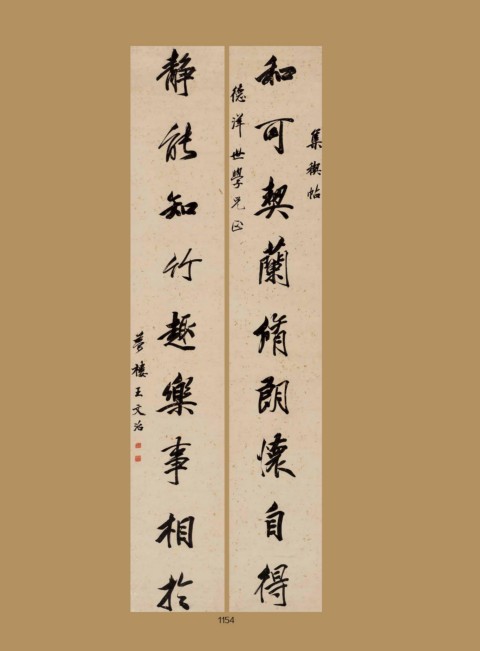 集禊帖
和可契蘭脩朗懷自得
德洋世學兄正
靜能知竹趣樂事相於
夢樓王文治
1154